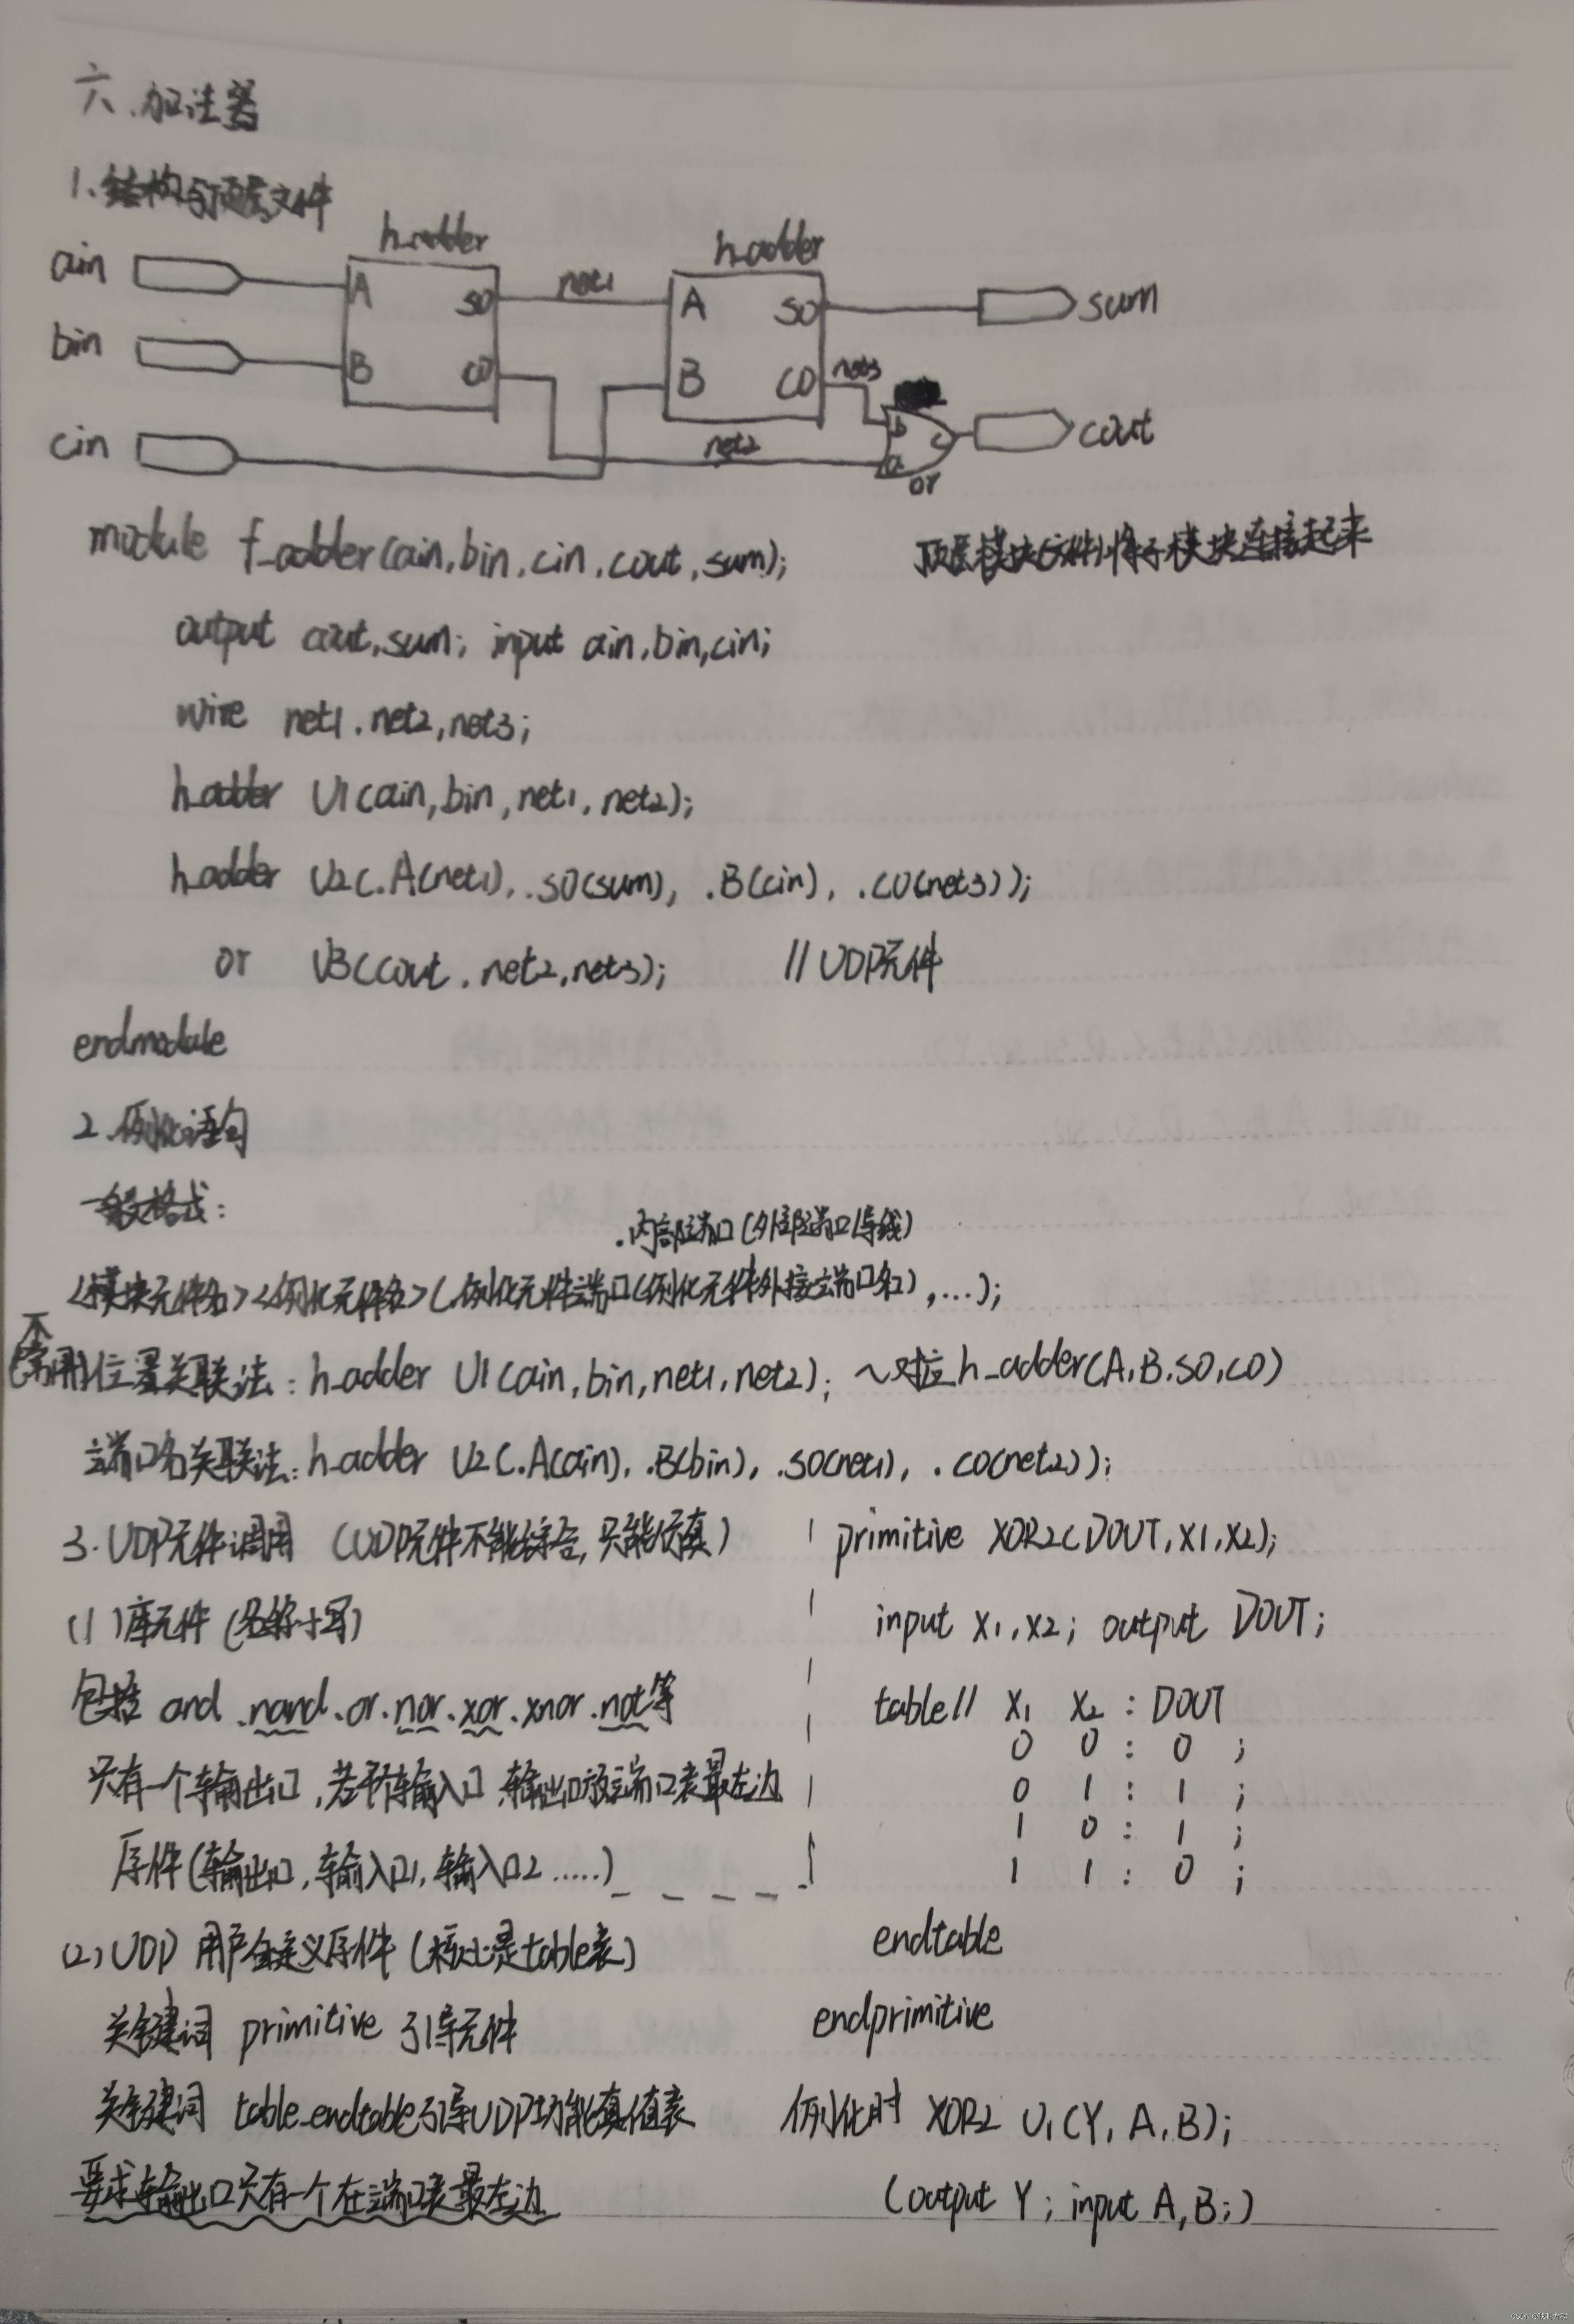 六.加法器
1、结构与顶层文件
h_adder h_adder
ain A SO net1 A SO sum
bin B CO B CO net3
b c cout
cin net2 a
or
module f_adder(ain,bin,cin,cout,sum); 顶层模块(文件)将子模块连接起来
output cout,sum; input ain,bin,cin;
wire net1.net2,net3;
h_adder U1(ain,bin,net1,net2);
h_adder U2(.A(net1),.SO(sum),.B(cin),.CO(net3));
or U3(cout.net2,net3); //UDP元件
endmodule
2.例化语句
一般格式:
.内部端口(外部端口/导线)
<模块元件名><例化元件名>(.例化元件端口(例化元件外接端口名),...);
(不常用)位置关联法:h_adder U1(ain,bin,net1,net2); ~对应h_adder(A,B.SO,CO)
端口名关联法:h_adder U2(.A(ain),.B(bin),.SO(net1),.CO(net2));
3.UDP元件调用 (UDP元件不能综合,只能仿真)
(1)库元件(名称小写)
包括 and.nand.or.nor.xor.xnor.not等
只有一个输出口,若干输入口,输出口放端口表最左边
原件(输出口,输入口1,输入口2.....)
(2)UDP 用户自定义原件(核心是table表)
关键词 primitive 引导元件
关键词 table_endtable引导UDP功能真值表
要求输出口只有一个在端口表最左边
primitive XOR2(DOUT,X1,X2);
input X1,X2; output DOUT;
table// X1 X2 : DOUT
0 0 : 0 ;
0 1 : 1 ;
1 0 : 1 ;
1 1 : 0 ;
endtable
endprimitive
例化时 XOR2 U1(Y,A,B);
(output Y; input A,B;)